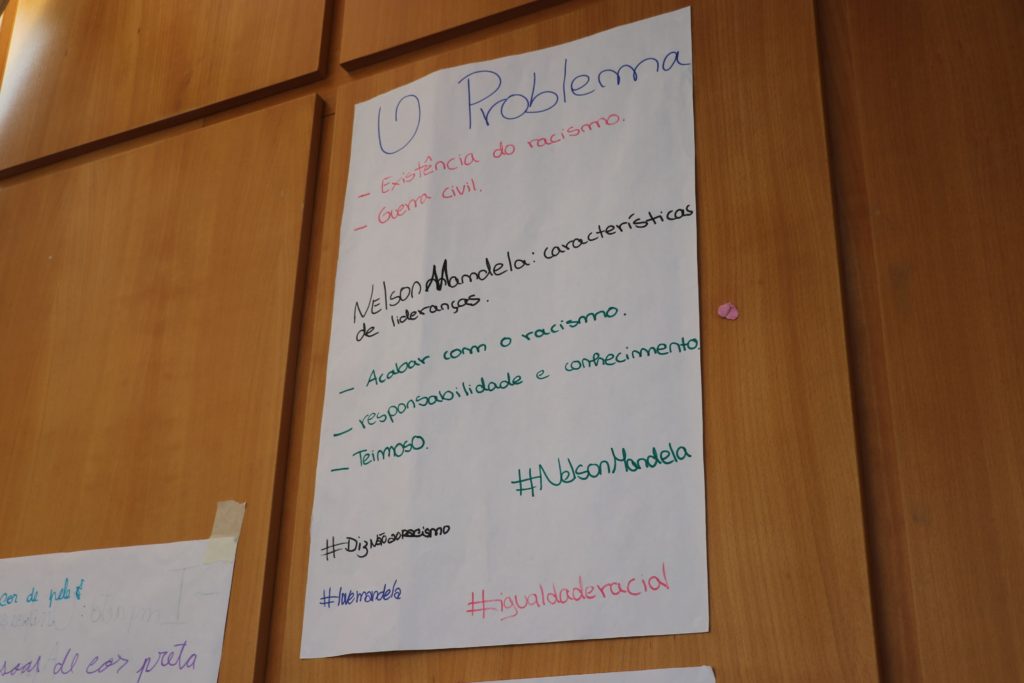 O Problema
- Existência do racismo.
- Guerra civil.
Nelson Mandela: características
de lideranças.
- Acabar com o racismo.
- responsabilidade e conhecimento.
- Teimoso.
#NelsonMandela
#DizNãoaoracismo
#lovemandela
#igualdaderacial
cor de pele
soas de cor preta